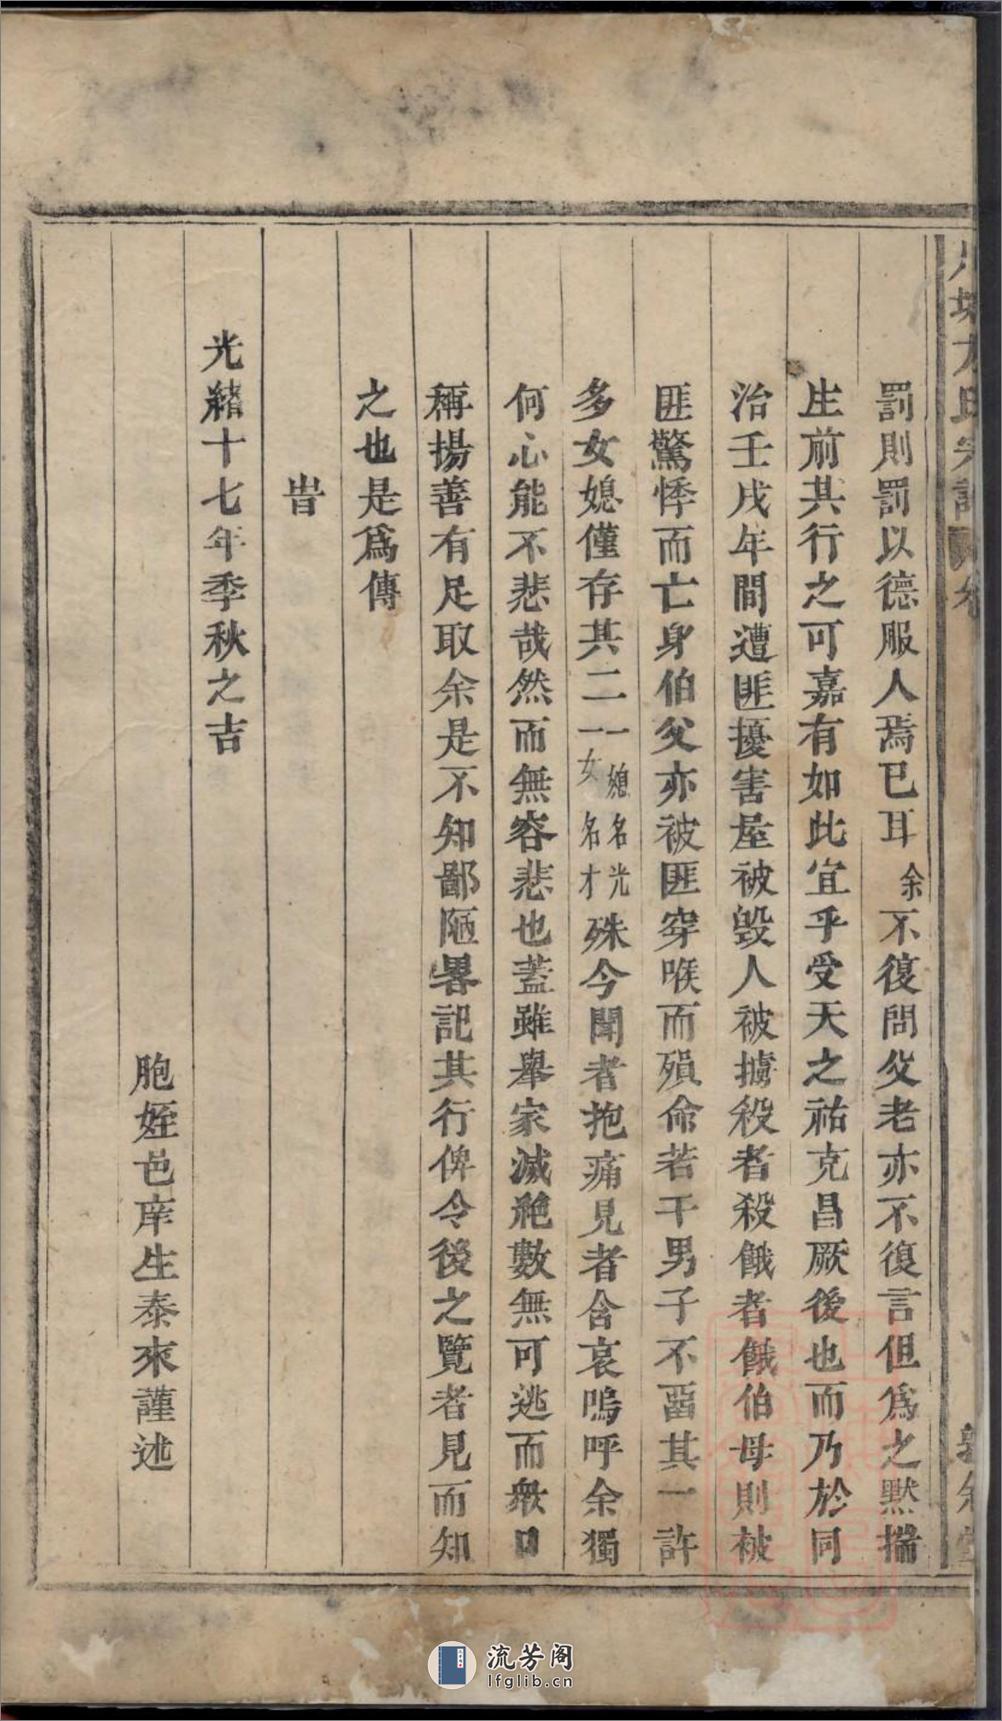 罰則罰以德服人焉已耳余不復問父老亦不復言但爲之默揣
生前其行之可嘉有如此宜乎受天之祐克昌厥後也而乃於同
治壬戌年間遭匪擾害屋被毀人被擄殺者殺餓者餓伯母則被
匪驚悸而亡身伯父亦被匪穿喉而殞命若干男子不畱其一許
多女媳僅存其二一媳名光一女名才殊今聞者抱痛見者含哀嗚呼余獨
何心能不悲哉然而無容悲也蓋雖舉家滅絕數無可逃而衆口
稱揚善有足取余是不知鄙陋畧記其行俾令後之覽者見而知
之也是爲傳
旹
光緒十七年季秋之吉
胞姪邑庠生泰來謹述
方氏宗譜
流芳阁
lfglib.cn